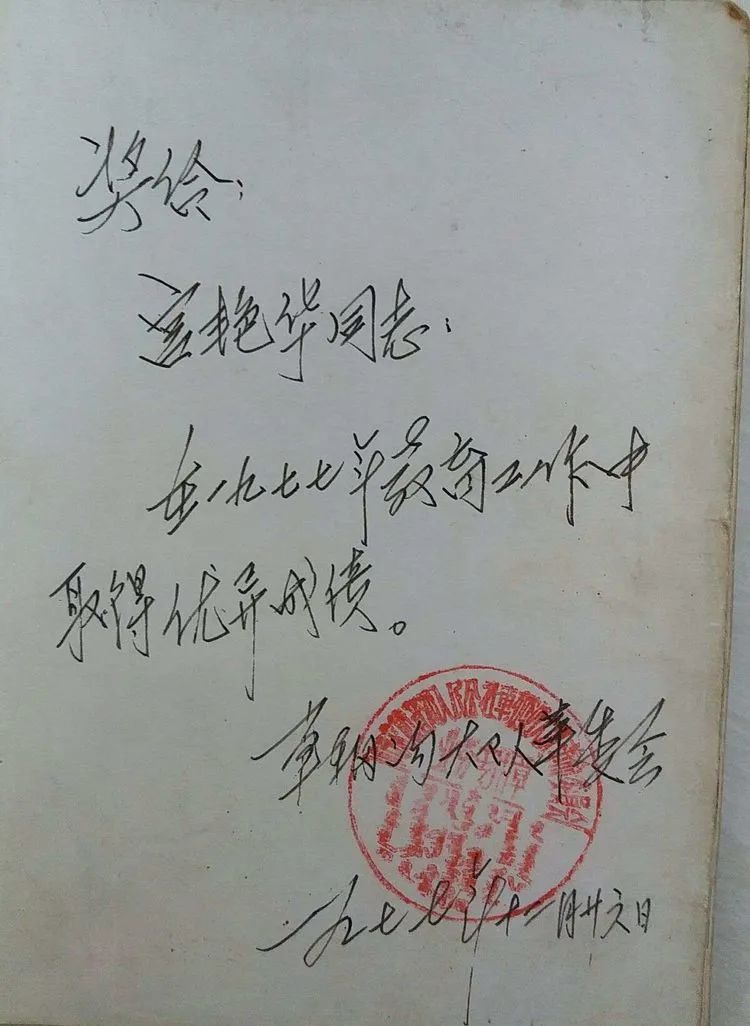 奖给：
宫艳华同志：
在一九七七年教育工作中
取得优异成绩。
大队革委会
一九七七年十二月廿六日